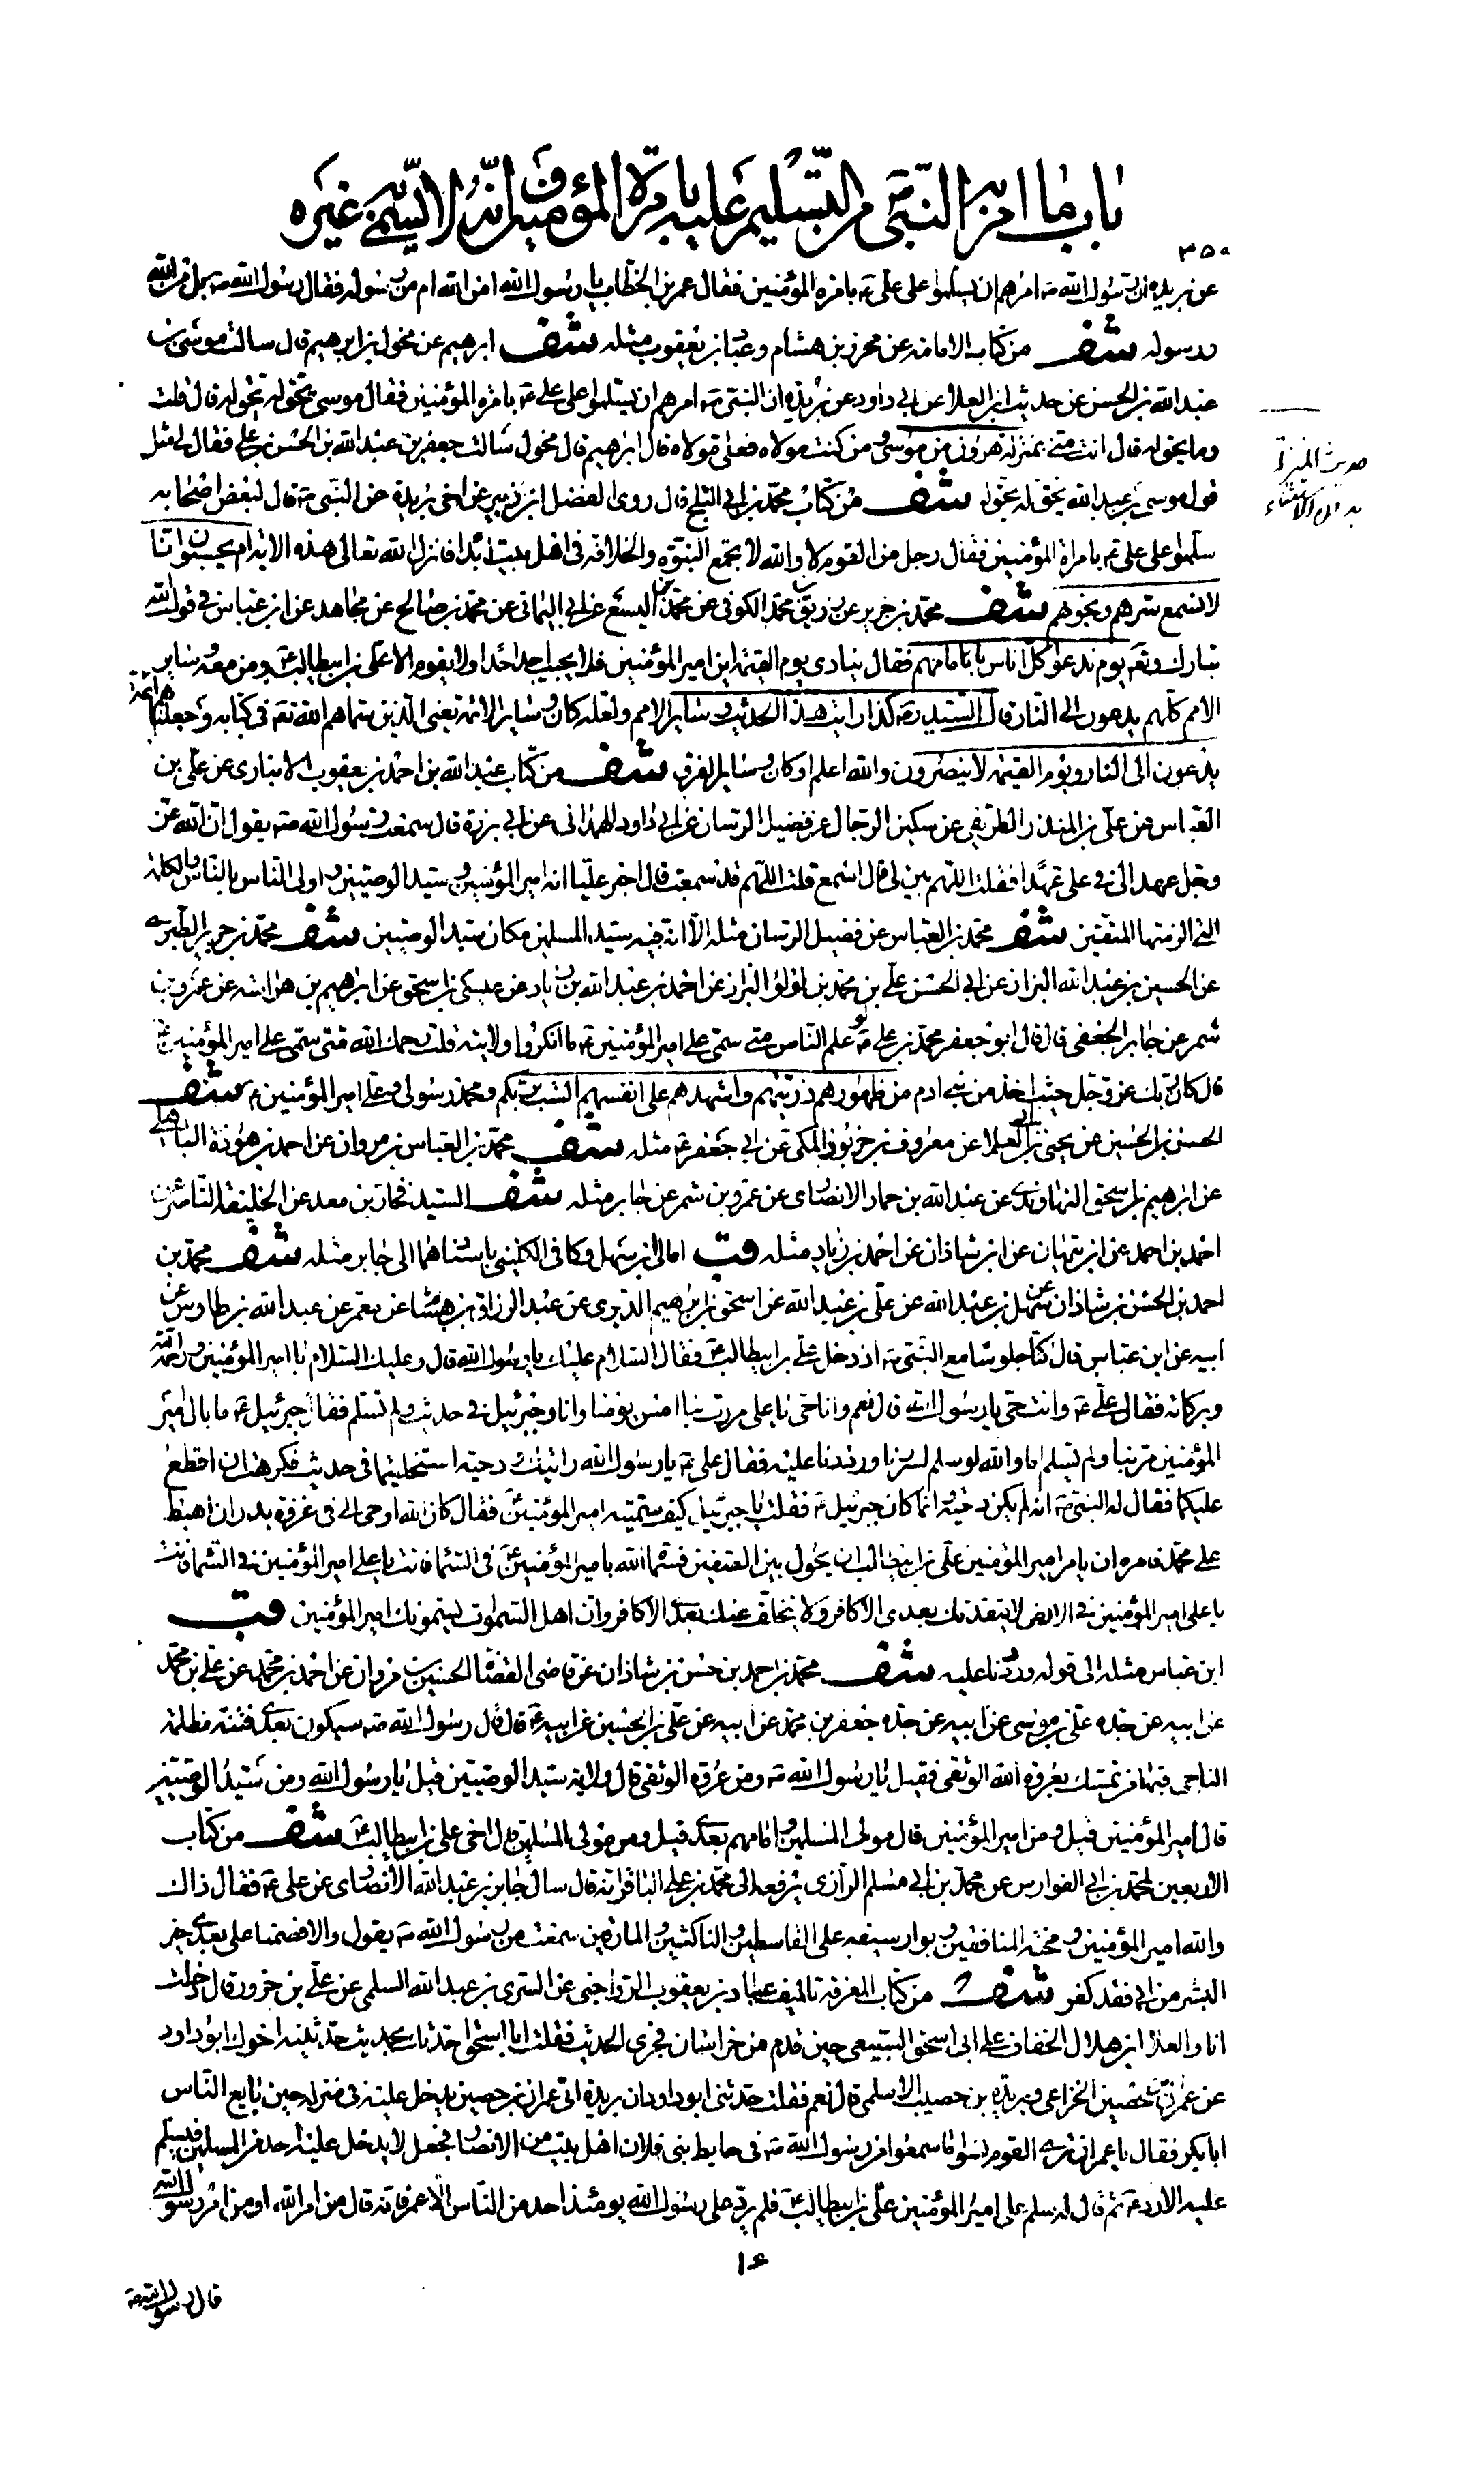 باب ما امر به النبی ص من التسلیم علیه بامرة المؤمنین و انه لا یسمی غیره
۳۵۰
عن بریده ان رسول الله صه امرهم ان یسلموا علی علی عه بامره المؤمنین فقال عمر بن الخطاب یا رسول الله امن الله ام من رسوله فقال رسول الله صه بل من الله
و رسوله شف من کتاب الامامه عن محرز بن هشام و عباد بن یعقوب مثله شف ابرهیم عن مخول بن ابرهیم قال سالت موسی بن
عبد الله بن الحسن عن حدیث ابن العلا عن ابی داود عن بریده ان النبی صه امرهم ان یسلموا علی علی عه بامره المؤمنین فقال موسی یحق له یحق له قال قلت
وما یحق له قال انت منی بمنزله هرون من موسی و من کنت مولاه فعلی مولاه قال ابرهیم قال مخول سالت جعفر بن عبد الله بن الحسن بن علی فقال لی مثل
قول موسی بن عبد الله یحق له یحق له شف من کتاب محمد بن ابی الثلج قال روی الفضل ابن زبیر عن اخی بریدة عن النبی صه قال لبعض اصحابه
سلموا علی علی عه بامرة المؤمنین فقال رجل من القوم لا والله لا یجتمع النبوه والخلافه فی اهل بیت ابدا فانزل الله تعالی هذه الایه ام یحسبون انا
لا نسمع سرهم ونجویهم شف محمد بن جریر عن زریق بن محمد الکوفی عن محمد بن الیسع عن ابی الیمانی عن محمد بن صالح عن مجاهد عن ابن عباس فی قول الله
تبارک وتعه یوم ندعوا کل اناس بامامهم فقال ینادی یوم القیمه این امیر المؤمنین فلا یجیب احد احدا ولا یقوم الا علی بن ابیطالب عه ومن معه وسایر
الامم کلهم یدعون الی النار قال السید ره کذا رایت هذا الحدیث و سایر الامم ولعله کان و سایر الائمه یعنی الذین سماهم الله تعه فی کتابه وجعلناهم ائمة
یدعون الی النار ویوم القیمه لا ینصرون والله اعلم او کان و سایر الفرق شف من کتاب عبد الله بن احمد بن یعقوب الانباری عن علی بن
العباس عن علی بن المنذر الطریفی عن سکین الرحال عن فضیل الرسان عن ابی داود الهمدانی عن ابی برزة قال سمعت رسول الله صه یقول ان الله عز
وجل عهد الی فی علی عهدا فقلت اللهم بین لی قال اسمع قلت اللهم قد سمعت قال اخبر علیا انه امیر المؤمنین و سید الوصیین و اولی الناس بالناس والکلمه
التی الزمتها المتقین شف محمد بن العباس عن فضیل الرسان مثله الا ان فیه سید المسلمین مکان سید الوصیین شف محمد بن جریر الطبری
عن الحسین بن عبد الله البزاز عن ابی الحسن علی بن محمد بن لؤلؤ البزاز عن احمد بن عبد الله بن زیاد عن عیسی بن اسحق عن ابرهیم بن هراسه عن عمرو بن
شمر عن جابر الجعفی قال قال ابو جعفر محمد بن علی عه لو علم الناس متی سمی علی امیر المؤمنین عه ما انکروا ولایته قلت رحمک الله متی سمی علی امیر المؤمنین عه
قال کان ربک عز وجل حیث اخذ من بنی ادم من ظهورهم ذریتهم واشهدهم علی انفسهم الست بربکم ومحمد رسولی وعلی امیر المؤمنین م شف
الحسن بن الحسین عن یحیی بن ابی العلا عن معروف بن خربوذ المکی عن ابی جعفر عه مثله شف محمد بن العباس بن مروان عن احمد بن هوذة الباهلی
عن ابرهیم بن اسحق النهاوندی عن عبد الله بن حماد الانصاری عن عمرو بن شمر عن جابر مثله شف السید فخار بن معد عن الخلیفه الناصر عن
احمد بن احمد عن ابن نبهان عن ابن شاذان عن احمد بن زیاد مثله قب امالی ابن سهل وکافی الکلینی باسنادهما الی جابر مثله شف محمد بن
احمد بن الحسن بن شاذان عن سهل بن عبد الله عن علی بن عبد الله عن اسحق بن ابرهیم الدیری عن عبد الرزاق بن هشام عن معمر عن عبد الله بن طاوس عن
ابیه عن ابن عباس قال کنا جلوسا مع النبی صه اذ دخل علی بن ابیطالب عه فقال السلام علیک یا رسول الله قال وعلیک السلام یا امیر المؤمنین ورحمة الله
وبرکاته فقال علی عه وانت حی یا رسول الله قال نعم وانا حی یا علی مررت بنا امس یومنا وانا وجبرئیل فی حدیث ولم تسلم فقال جبرئیل عه ما بال امیر
المؤمنین مر بنا ولم یسلم اما والله لو سلم لسررنا ورددنا علیه فقال علی عه یا رسول الله رایتک ودحیه استخلیتما فی حدیث فکرهت ان اقطع
علیکما فقال له النبی صه انه لم یکن دحیه انما کان جبرئیل عه فقلت یا جبرئیل کیف سمیته امیر المؤمنین فقال کان الله اوحی الی فی غزوة بدر ان اهبط
علی محمد فامره ان یامر امیر المؤمنین علی بن ابیطالب ان یجول بین الصفین فسماه الله بامیر المؤمنین عه فی السماء فانت یا علی امیر المؤمنین فی السماء وانت
یا علی امیر المؤمنین فی الارض لا یتقدمک بعدی الا کافر ولا یتخلف عنک بعدی الا کافر وان اهل السموات لیسمونک امیر المؤمنین قب
ابن عباس مثله الی قوله ورددنا علیه شف محمد بن احمد بن حسن بن شاذان عن قاضی القضاة الحسین بن مروان عن احمد بن محمد عن علی بن محمد
عن ابیه عن جده علی بن موسی عن ابیه عن جده جعفر بن محمد عن ابیه عن علی بن الحسین عن ابیه عه قال قال رسول الله صه سیکون بعدی فتنه مظلمه
الناجی فیها من تمسک بعروة الله الوثقی فقیل یا رسول الله صه ومن عروة الوثقی قال ولایه سید الوصیین قیل یا رسول الله ومن سید الوصیین
قال امیر المؤمنین قیل ومن امیر المؤمنین قال مولی المسلمین وامامهم بعدی قیل ومن مولی المسلمین قال اخی علی بن ابیطالب عه شف من کتاب
الاربعین لمحمد بن ابی الفوارس عن محمد بن ابی مسلم الرازی یرفعه الی محمد بن علی الباقر انه قال سال جابر بن عبد الله الانصاری عن علی عه فقال ذاک
والله امیر المؤمنین و محنه المنافقین و بوار سیفه علی القاسطین والناکثین والمارقین سمعت من رسول الله صه یقول والا فصمتا علی بعدی خیر
البشر من ابی فقد کفر شف من کتاب المعرفة تالیف عباد بن یعقوب الرواجنی عن السری بن عبد الله السلمی عن علی بن حزور قال دخلت
انا والعلا ابن هلال الخفاف علی ابی اسحق السبیعی حین قدم من خراسان فجری الحدیث فقلت ابا اسحق احدثک بحدیث حدثنیه اخوک ابو داود
عن عمران بن حصین الخزاعی وبریده بن حصیب الاسلمی قال نعم فقلت حدثنی ابو داود ان بریدة اتی عمران بن حصین یدخل علیه فی منزله حین بایع الناس
ابا بکر فقال یا عمران تری القوم نسوا ما سمعوا من رسول الله صه فی حایط بنی فلان اهل بیت من الانصار فجعل لا یدخل علیه احد من المسلمین فیسلم
علیه الا رد عه ثم قال له سلم علی امیر المؤمنین علی بن ابیطالب عه فلم یرد علی رسول الله یومئذ احد من الناس الا عمر فانه قال من امر الله او من امر رسول الله
۱۶
قال رسول الله صه
حدیث المنزلة
بدون الاستثناء